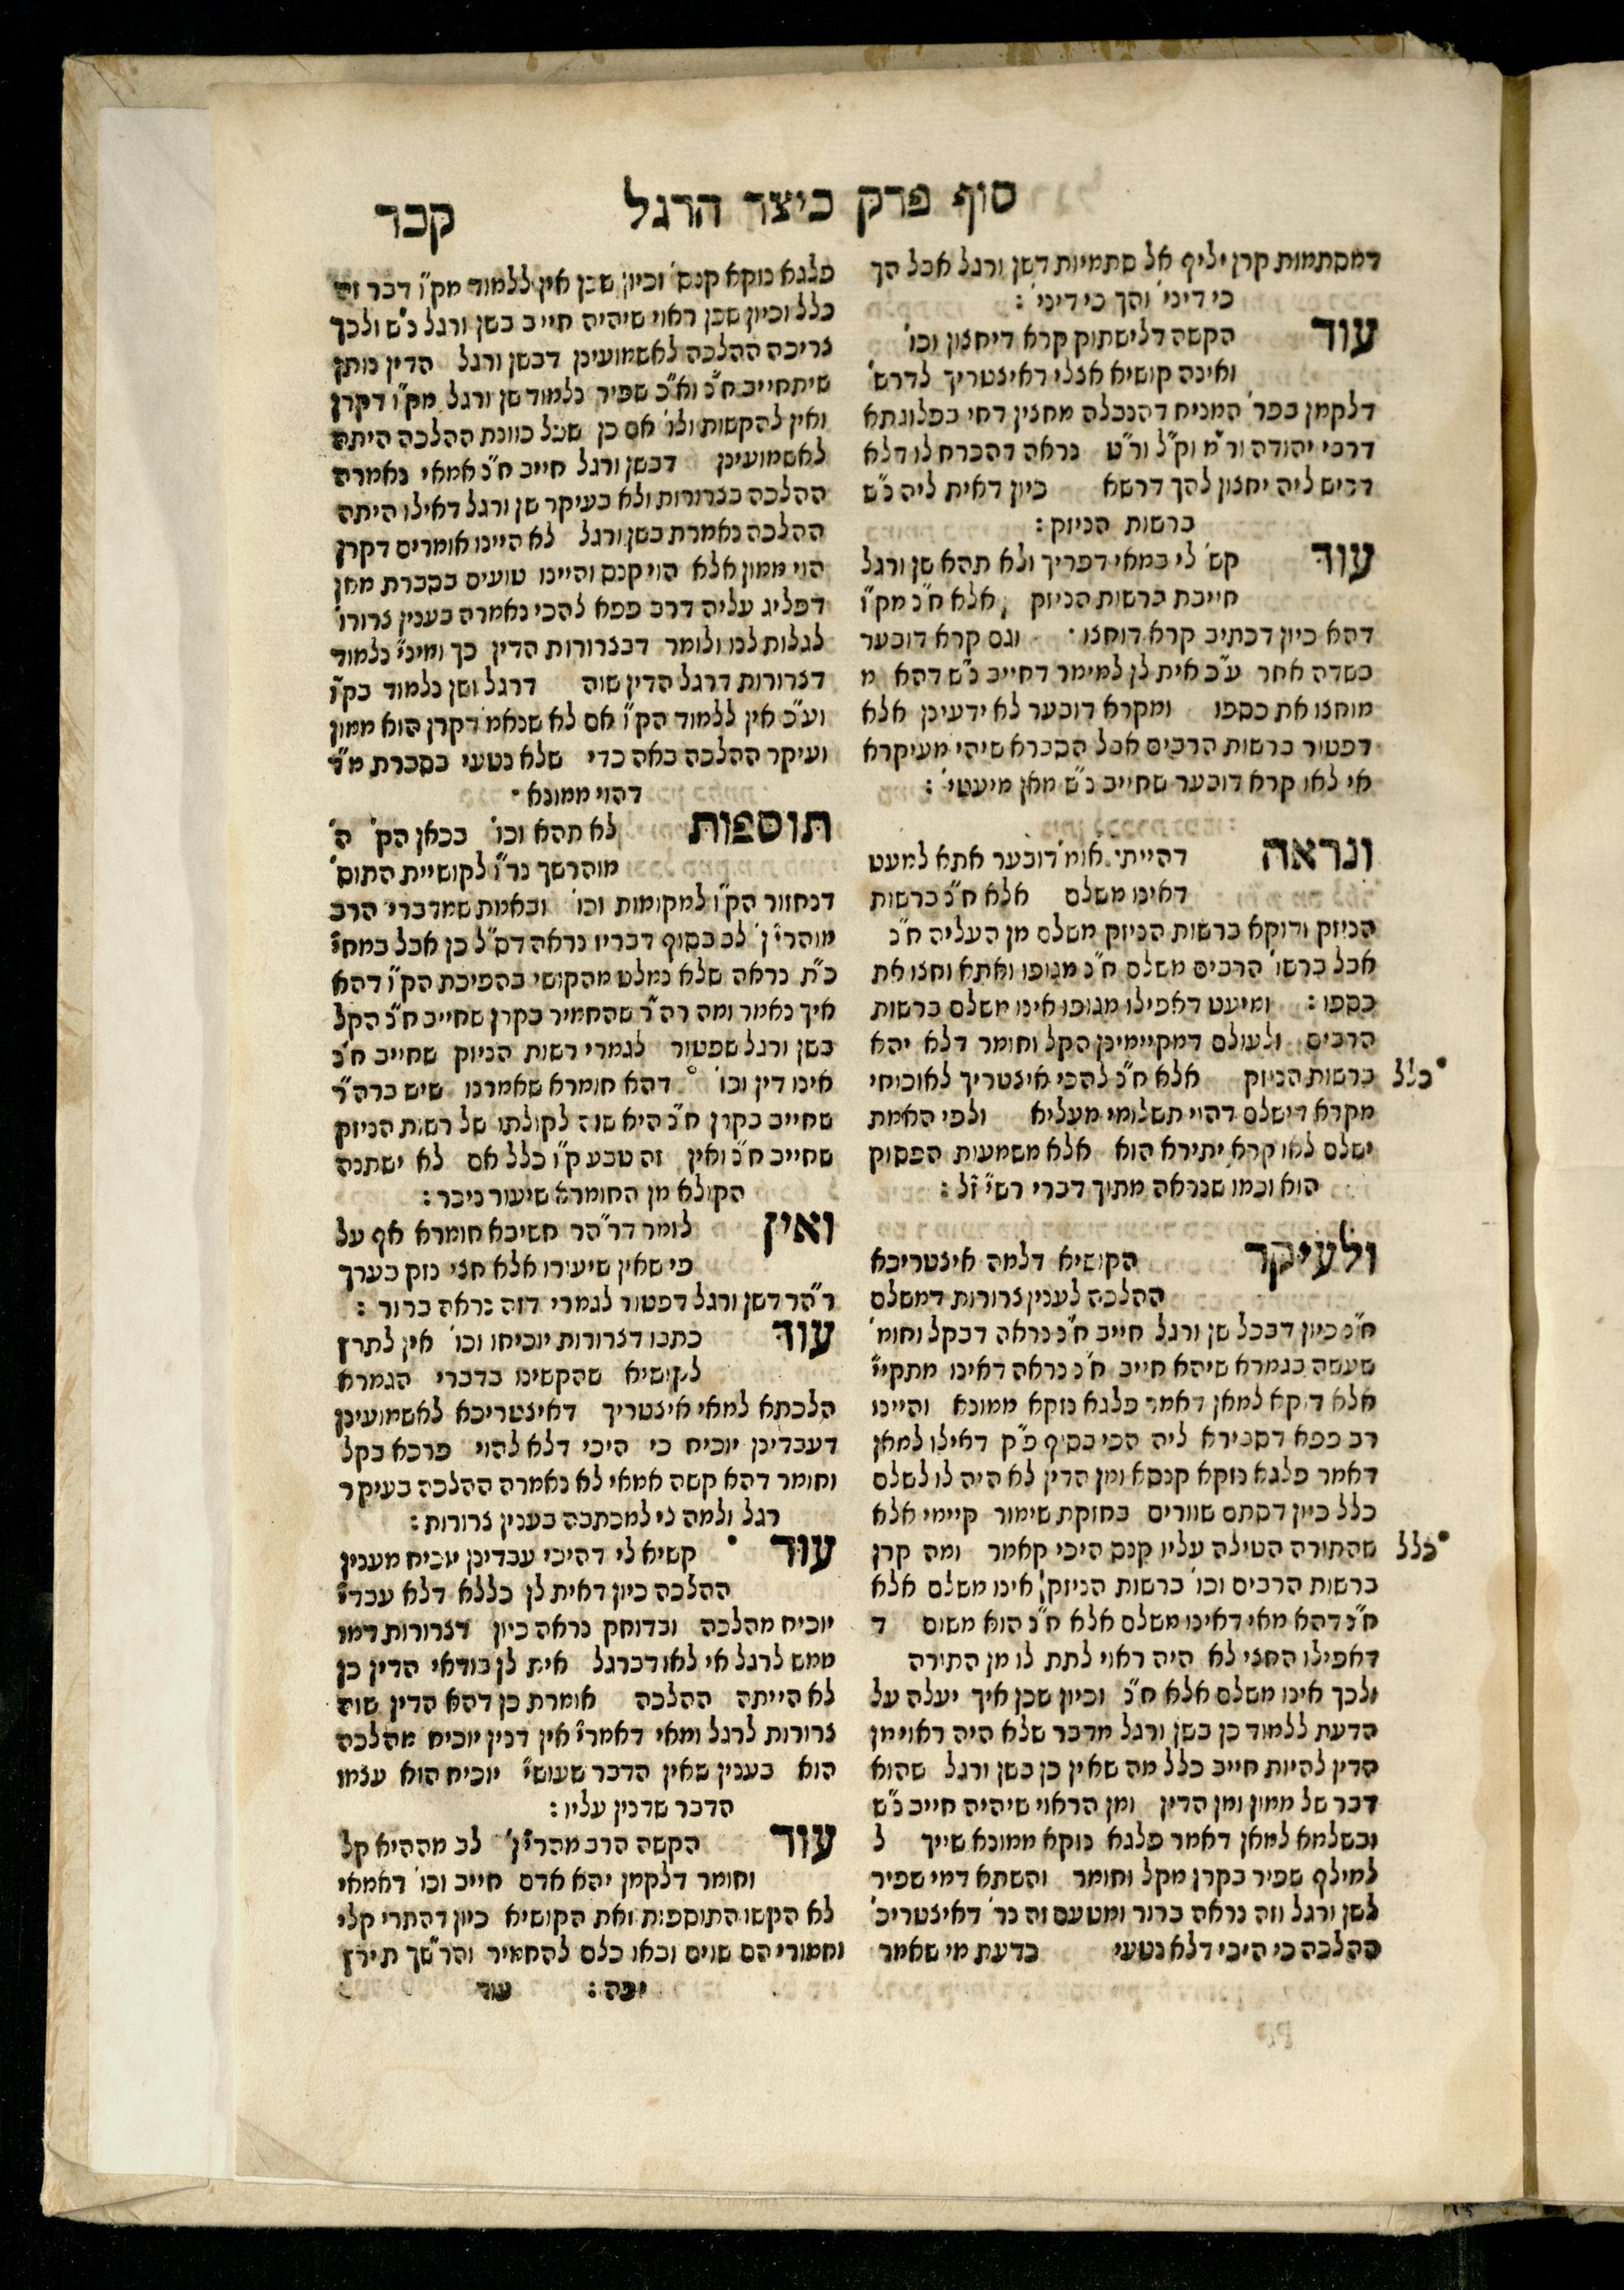 סוף פרק כיצד הרגל
קכד
דמסתמות קרן יליף אל סתמיות דשן ורגל אבל הך
כי דיני' והך כי דיני' :
עוד הקשה דלישתוק קרא דיחצון וכו'
ואינה קושיא אצלי דאיצטריך לדרש'
דלקמן בפר' המניח דהנבלה מחצין דחי בפלוגתא
דרבי יהודה ור"מ וק"ל ור"ט נראה דהכרח לו דלא
דביש ליה יחצון להך דרשא כיון דאית ליה כ"ש
ברשות הניזק :
עוד קש' לי במאי דפריך ולא תהא שן ורגל
חייבת ברשות הניזק אלא ח"נ מק"ו
דהא כיון דכתיב קרא דוחצו וגם קרא דובער
בשדה אחר ע"כ אית לן למימר דחייב כ"ש דהא מ
מוחצו את כספו ומקרא דובער לא ידעינן אלא
דפטור ברשות הרבים אבל הסברא שיהי' מעיקרא
אי לאו קרא דובער שחייב כ"ש מאן מיעטי' :
ונראה דהיית' אומ' דובער אתא למעט
דאינו משלם אלא ח"נ ברשות
הניזק ודוקא ברשות הניזק משלם מן העליה ח"נ
אבל ברשו' הרבים משלם ח"נ מגופו ואתא וחצו את
כספו : ומיעט דאפילו מגופו אינו משלם ברשות
הרבים ולעולם דמקיימינן הקל וחומר דלא יהא
ברשות הניזק אלא ח"נ להכי איצטריך לאוכוחי
כלל
מקרא דישלם דהוי תשלומי מעליא ולפי האמת
ישלם לאו קרא יתירא הוא אלא משמעות הפסוק
הוא וכמו שנראה מתוך דברי רש"י ז"ל :
ולעיקר הקושיא דלמה איצטריכא
ההלכה לענין צרורות דמשלם
ח"נ כיון דבכל שן ורגל חייב ח"נ נראה דבקל וחומ'
שעשה בגמרא שיהא חייב ח"נ נראה דאינו מתקיי'
אלא דוקא למאן דאמר פלגא נזקא ממונא והיינו
רב פפא דסבירא ליה הכי בסוף פ"ק דאילו למאן
דאמר פלגא נזקא קנסא ומן הדין לא היה לו לשלם
כלל כיון דסתם שוורים בחזקת שימור קיימי אלא
שהתורה הטילה עליו קנס היכי קאמר ומה קרן
כלל
ברשות הרבים וכו' ברשות הניזק אינו משלם אלא
ח"נ דהא מאי דאינו משלם אלא ח"נ הוא משום ד
דאפילו החצי לא היה ראוי לתת לו מן התורה
ולכך אינו משלם אלא ח"נ וכיון שכן איך יעלה על
הדעת ללמוד כן בשן ורגל מדבר שלא היה ראוי מן
הדין להיות חייב כלל מה שאין כן בשן ורגל שהוא
דבר של ממון ומן הדין ומן הראוי שיהיה חייב כ"ש
ובשלמא למאן דאמר פלגא נזקא ממונא שייך ל
למילף שפיר בקרן מקל וחומר והשתא דמי שפיר
לשן ורגל וזה נראה ברור ומטעם זה נר' דאיצטריכ'
ההלכה כי היכי דלא נטעי בדעת מי שאמר
פלגא נזקא קנס' וכיון שכן אין ללמוד מק"ו דבר זה
כלל וכיון שכן ראוי שיהיה חייב בשן ורגל כ"ש ולכך
צריכה ההלכה לאשמועינן דבשן ורגל הדין נותן
שיתחייב ח"נ וא"כ שפיר נלמוד שן ורגל מק"ו דקרן
ואין להקשות ולו' אם כן שכל כוונת ההלכה היתה
לאשמועינן דבשן ורגל חייב ח"נ אמאי נאמרה
ההלכה בצרורות ולא בעיקר שן ורגל דאילו היתה
ההלכה נאמרת בשן ורגל לא היינו אומרים דקרן
הוי ממון אלא הוי קנס והיינו טועים בסברת מאן
דפליג עליה דרב פפא להכי נאמרה בענין צרורו'
לגלות לנו ולומר דבצרורות הדין כך ומיני' נלמוד
דצרורות דרגל הדין שוה דרגל ושן נלמוד בק"ו
וע"כ אין ללמוד הק"ו אם לא שנאמ' דקרן הוא ממון
ועיקר ההלכה באה כדי שלא נטעי בסברת מ"ד
דהוי ממונא
תוספות לא תהא וכו' בכאן הק' ה'
מוהרשך נר"ו לקושיית התוס'
דנחזור הק"ו למקומות וכו' ובאמת שמדברי הרב
מוהרי"ן לב בסוף דבריו נראה דס"ל כן אבל במחי'
כ"ת נראה שלא נמלט מהקושי בהפיכת הק"ו דהא
איך נאמר ומה רה"ר שהחמיר בקרן שחייב ח"נ הקל
בשן ורגל שפטור לגמרי רשות הניזק שחייב ח"נ
אינו דין וכו' דהא חומרא שאמרנו שיש ברה"ר
שחייב בקרן ח"נ היא שוה לקולתו של רשות הניזק
שחייב ח"נ ואין זה טבע ק"ו כלל אם לא ישתנה
הקולא מן החומרא שיעור ניכר :
ואין לומר דר"הר חשיבא חומרא אף על
פי שאין שיעורו אלא חצי נזק בערך
ר"הר דשן ורגל דפטור לגמרי דזה נראה ברור :
עוד כתבו דצרורות יוכיחו וכו' אין לתרץ
לקושיא שהקשינו בדברי הגמרא
הלכתא למאי איצטריך דאיצטריכא לאשמועינן
דעבדינן יוכיח כי היכי דלא להוי פרכא בקל
וחומר דהא קשה אמאי לא נאמרה ההלכה בעיקר
רגל ולמה לי למכתבה בענין צרורות :
עוד קשיא לי דהיכי עבדינן יוכיח מענין
ההלכה כיון דאית לן כללא דלא עבדי'
יוכיח מהלכה ובדוחק נראה כיון דצרורות דמו
ממש לרגל אי לאו דברגל אית לן בודאי הדין כן
לא הייתה ההלכה אומרת כן דהא הדין שוה
צרורות לרגל ומאי דאמרי' אין דנין יוכיח מהלכה
הוא בענין שאין הדבר שעושי' יוכיח הוא עצמו
הדבר שדנין עליו :
עוד הקשה הרב מהרי"ן לב מההיא קל
וחומר דלקמן יהא אדם חייב וכו' דאמאי
לא הקשו התוספות זאת הקושיא כיון דהתרי קלי
וחמורי הם שוים ובאו כלם להחמיר והר"שך תירץ
יפה :
עוד